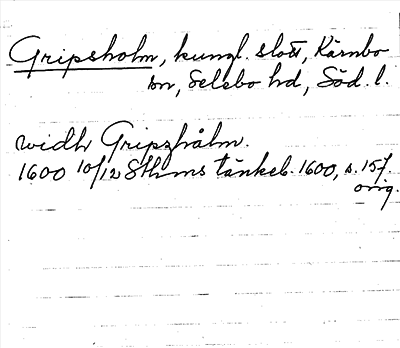 Gripsholm, kungl. slott, Kärnbo
sn, Selebo hd, Söd. l.
widh Gripzhålm.
1600 10/12 Sthms tänkeb. 1600, s. 157.
orig.